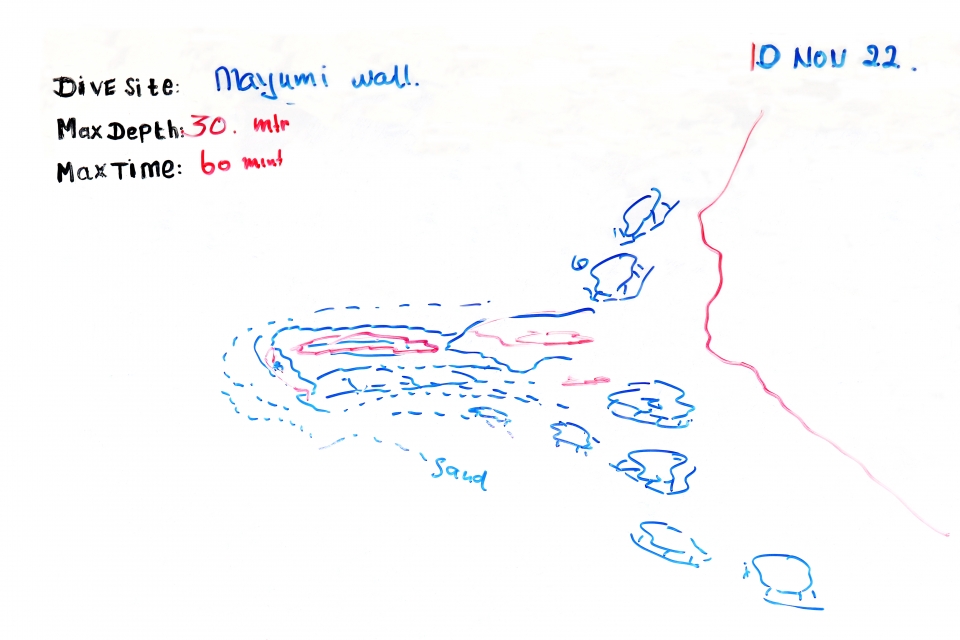 10 NOV 22.
Dive Site: Mayumi wall.
Max Depth: 30. mtr
Max Time: 60 mint
Sand